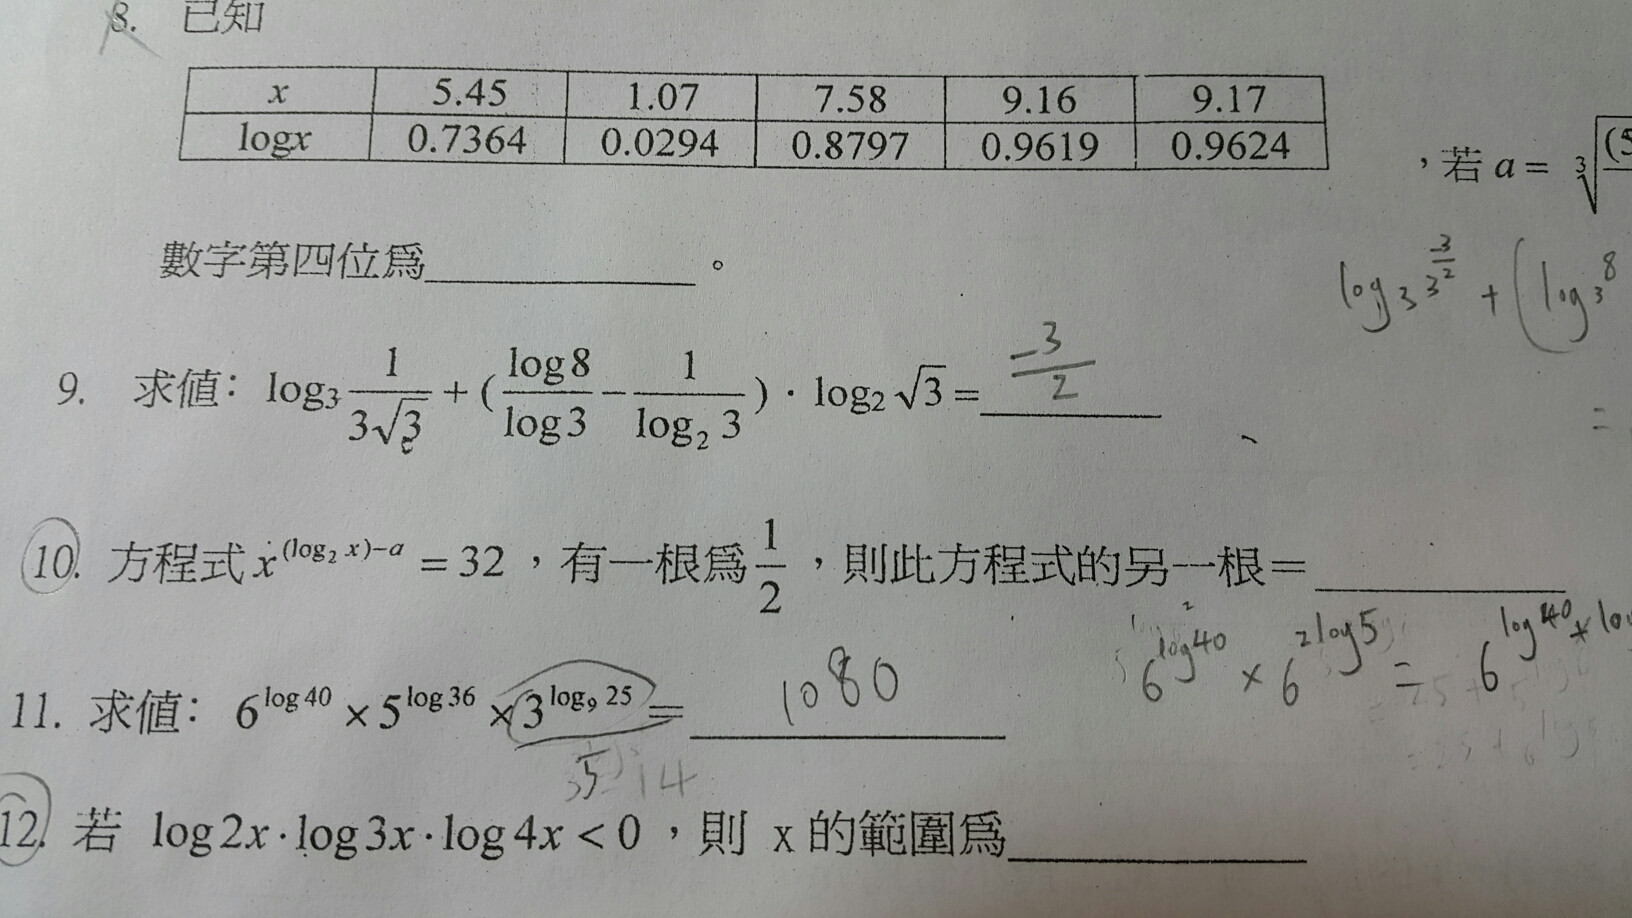 8. 已知
x 5.45 1.07 7.58 9.16 9.17
logx 0.7364 0.0294 0.8797 0.9619 0.9624
，若 a = ∛(5
數字第四位爲________。
log₃ 3^(3/2) + (log₃ 8
9. 求値：log₃ 1/(3√3) + (log8/log3 − 1/log₂ 3)·log₂ √3 = −3/2
10. 方程式 x^((log₂ x)−a) = 32，有一根爲 1/2，則此方程式的另一根=________
6^(log40) × 6^(2log5) = 6^(log40 +
11. 求値：6^(log40) × 5^(log36) × 3^(log₉ 25) = 1080
5
12. 若 log2x·log3x·log4x < 0，則 x 的範圍爲________